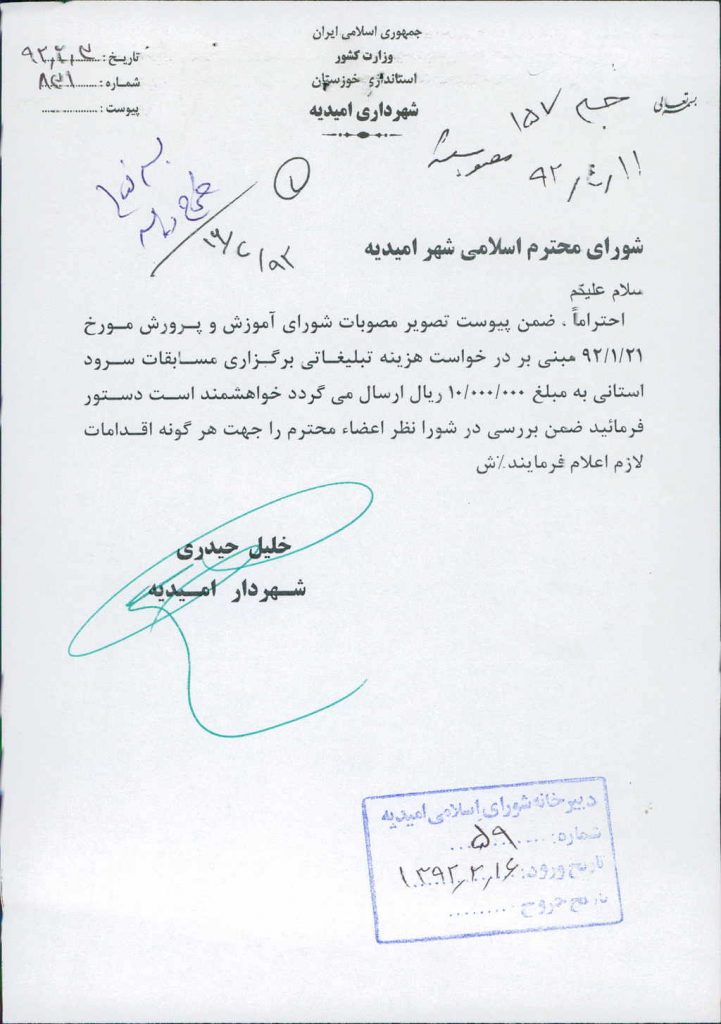 جمهوری اسلامی ایران
وزارت کشور
استانداری خوزستان
شهرداری امیدیه
تاریخ : ۹۲٫۲٫۳
شماره : ۸۳۱
پیوست :
بسمه تعالی
۱۵۷
مصوب
شورای محترم اسلامی شهر امیدیه
سلام علیکم
احتراماً ، ضمن پیوست تصویر مصوبات شورای آموزش و پرورش مورخ
۹۲/۱/۲۱ مبنی بر در خواست هزینه تبلیغاتی برگزاری مسابقات سرود
استانی به مبلغ ۱۰/۰۰۰/۰۰۰ ریال ارسال می گردد خواهشمند است دستور
فرمائید ضمن بررسی در شورا نظر اعضاء محترم را جهت هر گونه اقدامات
لازم اعلام فرمایند٪ش
خلیل حیدری
شهردار امیدیه
دبیرخانه شورای اسلامی امیدیه
شماره: ۵۹
تاریخ ورود: ۱۳۹۲٫۲٫۱۶
تاریخ خروج